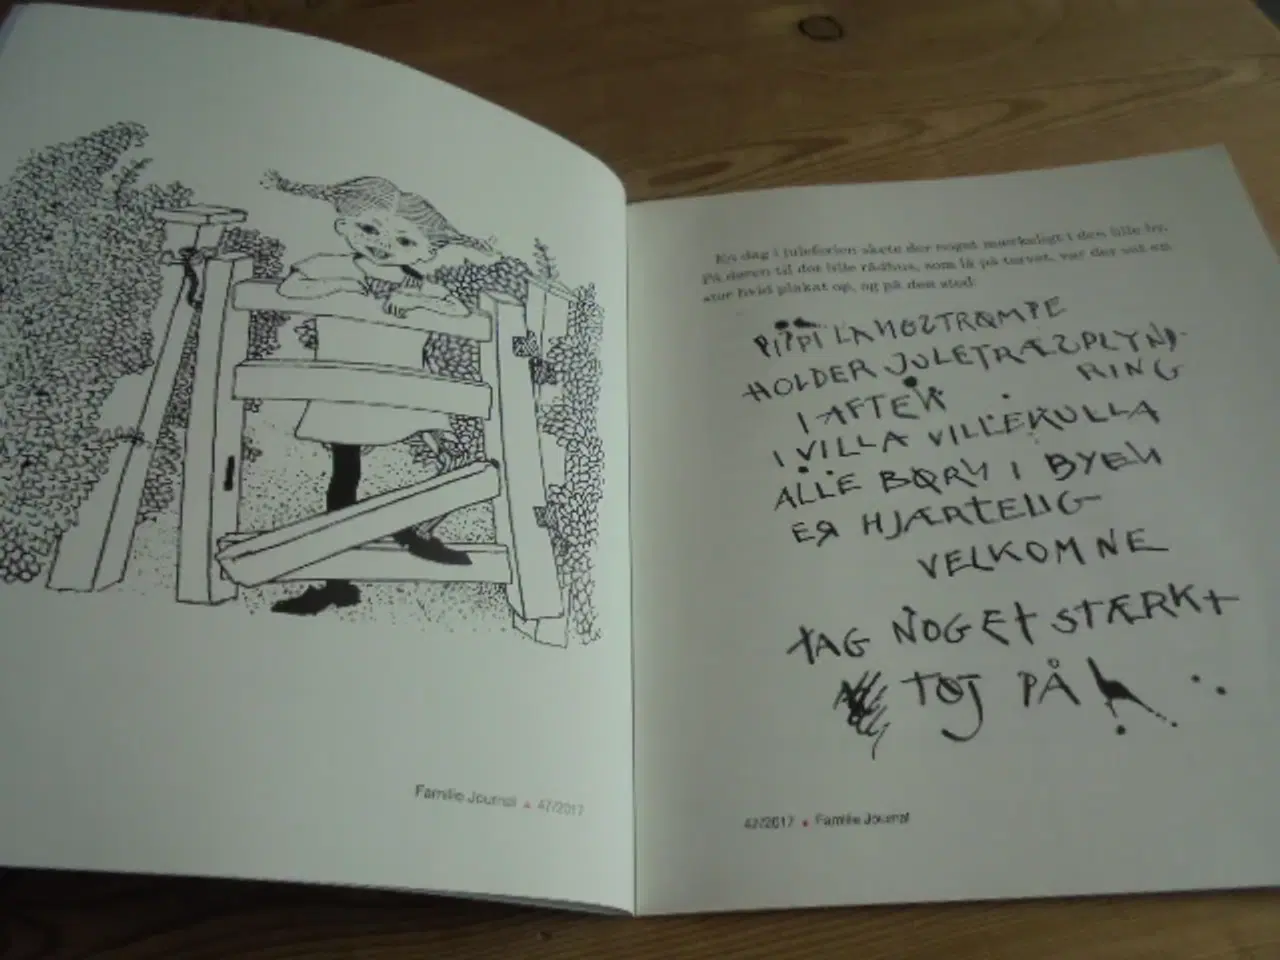 Familie Journal ▲ 47/2017
En dag i juleferien skete der noget mærkeligt i den lille by.
På døren til det lille rådhus, som lå på torvet, var der sat en
stor hvid plakat op, og på den stod:
PIPPI LANGSTRØMPE
HOLDER JULETRÆSPLYND-
RING
I AFTEN
I VILLA VILLEKULLA
ALLE BØRN I BYEN
ER HJÆRTELIG-
VELKOMNE
TAG NOGET STÆRKT
TØJ PÅ!
47/2017 ▲ Familie Journal